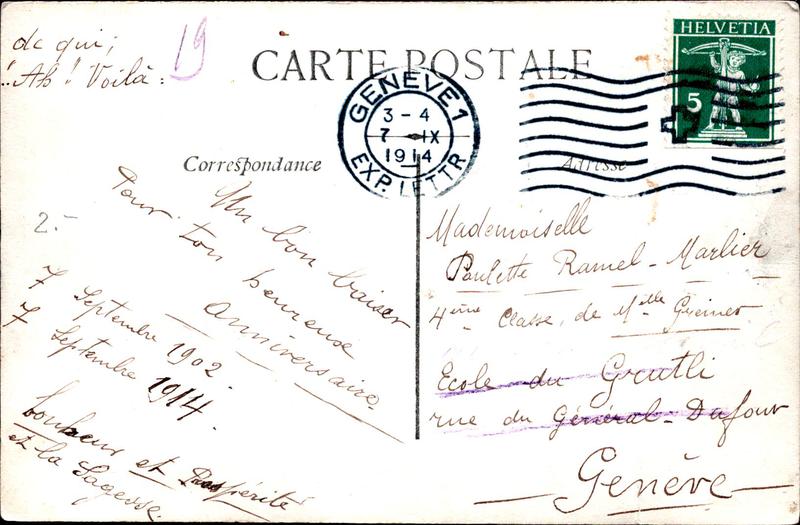 de qui;
"Ah"! Voilà:
19
CARTE POSTALE
HELVETIA
5
GENÈVE 1
3-4
7 IX
1914
EXP. LETTR
Correspondance
Adresse
2.-
Un bon baiser
Pour ton heureuse
anniversaire.
7 Septembre 1902
7 Septembre 1914.
bonheur et Prospérité
et la Sagesse.
Mademoiselle
Paulette Ramel-Marlier
4ème Classe, de Melle Greiner
Ecole du Grutli
rue du Général-Dufour
Genève